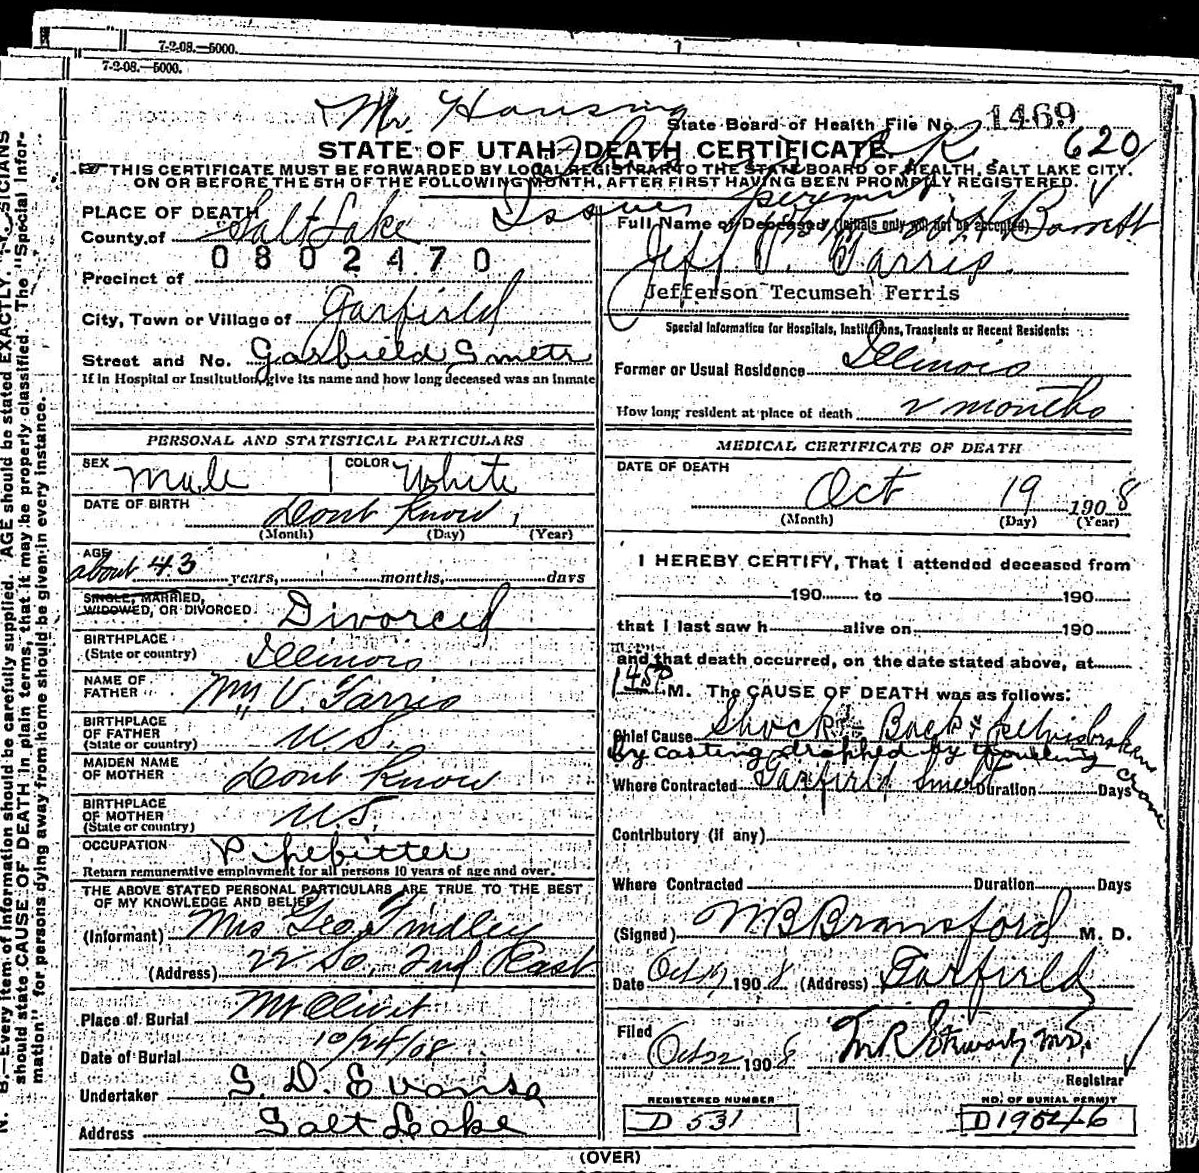 7-2-08.—5000.
7-2-08.—5000.
Mr. Hansing
State Board of Health File No. 1469
STATE OF UTAH—DEATH CERTIFICATE. 620
THIS CERTIFICATE MUST BE FORWARDED BY LOCAL REGISTRAR TO THE STATE BOARD OF HEALTH, SALT LAKE CITY.
ON OR BEFORE THE 5TH OF THE FOLLOWING MONTH, AFTER FIRST HAVING BEEN PROMPTLY REGISTERED.
Issues permit
PLACE OF DEATH
County of Salt Lake
0802470
Precinct of
City, Town or Village of Garfield
Street and No. Garfield Smeltr
If in Hospital or Institution, give its name and how long deceased was an Inmate
PERSONAL AND STATISTICAL PARTICULARS
SEX Male COLOR White
DATE OF BIRTH Dont Know
(Month) (Day) (Year)
AGE about 43 years, months, days
SINGLE, MARRIED,
WIDOWED, OR DIVORCED. Divorced
BIRTHPLACE
(State or country) Illinois
NAME OF
FATHER Wm V. Farris
BIRTHPLACE
OF FATHER
(State or country) U.S.
MAIDEN NAME
OF MOTHER Dont Know
BIRTHPLACE
OF MOTHER
(State or country) U.S.
OCCUPATION Pipefitter
Return remunerative employment for all persons 10 years of age and over.
THE ABOVE STATED PERSONAL PARTICULARS ARE TRUE TO THE BEST
OF MY KNOWLEDGE AND BELIEF
(Informant) Mrs Geo. Findley
(Address) 22 So, 2nd East
Place of Burial Mt Olivet
Date of Burial 10/24/08
Undertaker S. D. Evans
Address Salt Lake
Full Name of Deceased (Initials only will not be accepted) Barrett
Jeff T. Farris
Jefferson Tecumseh Ferris
Special Information for Hospitals, Institutions, Transients or Recent Residents:
Former or Usual Residence Illinois
How long resident at place of death 2 months
MEDICAL CERTIFICATE OF DEATH
DATE OF DEATH
Oct 19 1908
(Month) (Day) (Year)
I HEREBY CERTIFY, That I attended deceased from
190 to 190
that I last saw h alive on 190
and that death occurred, on the date stated above, at
1 45 P M. The CAUSE OF DEATH was as follows:
Chief Cause Shock Back & Pelvis broken
by casting dropped by traveling crane
Where Contracted Garfield Smelt Duration Days
Contributory (if any)
Where Contracted Duration Days
(Signed) W B Bransford M. D.
Date Oct 19 1908 (Address) Garfield
Filed Oct 22 1908
Registrar
REGISTERED NUMBER NO. OF BURIAL PERMIT
D 531 D19546
(OVER)
N. B.—Every item of information should be carefully supplied. AGE should be stated EXACTLY.
should state CAUSE OF DEATH in plain terms, that it may be properly classified. The "Special Infor-
mation" for persons dying away from home should be given in every instance.